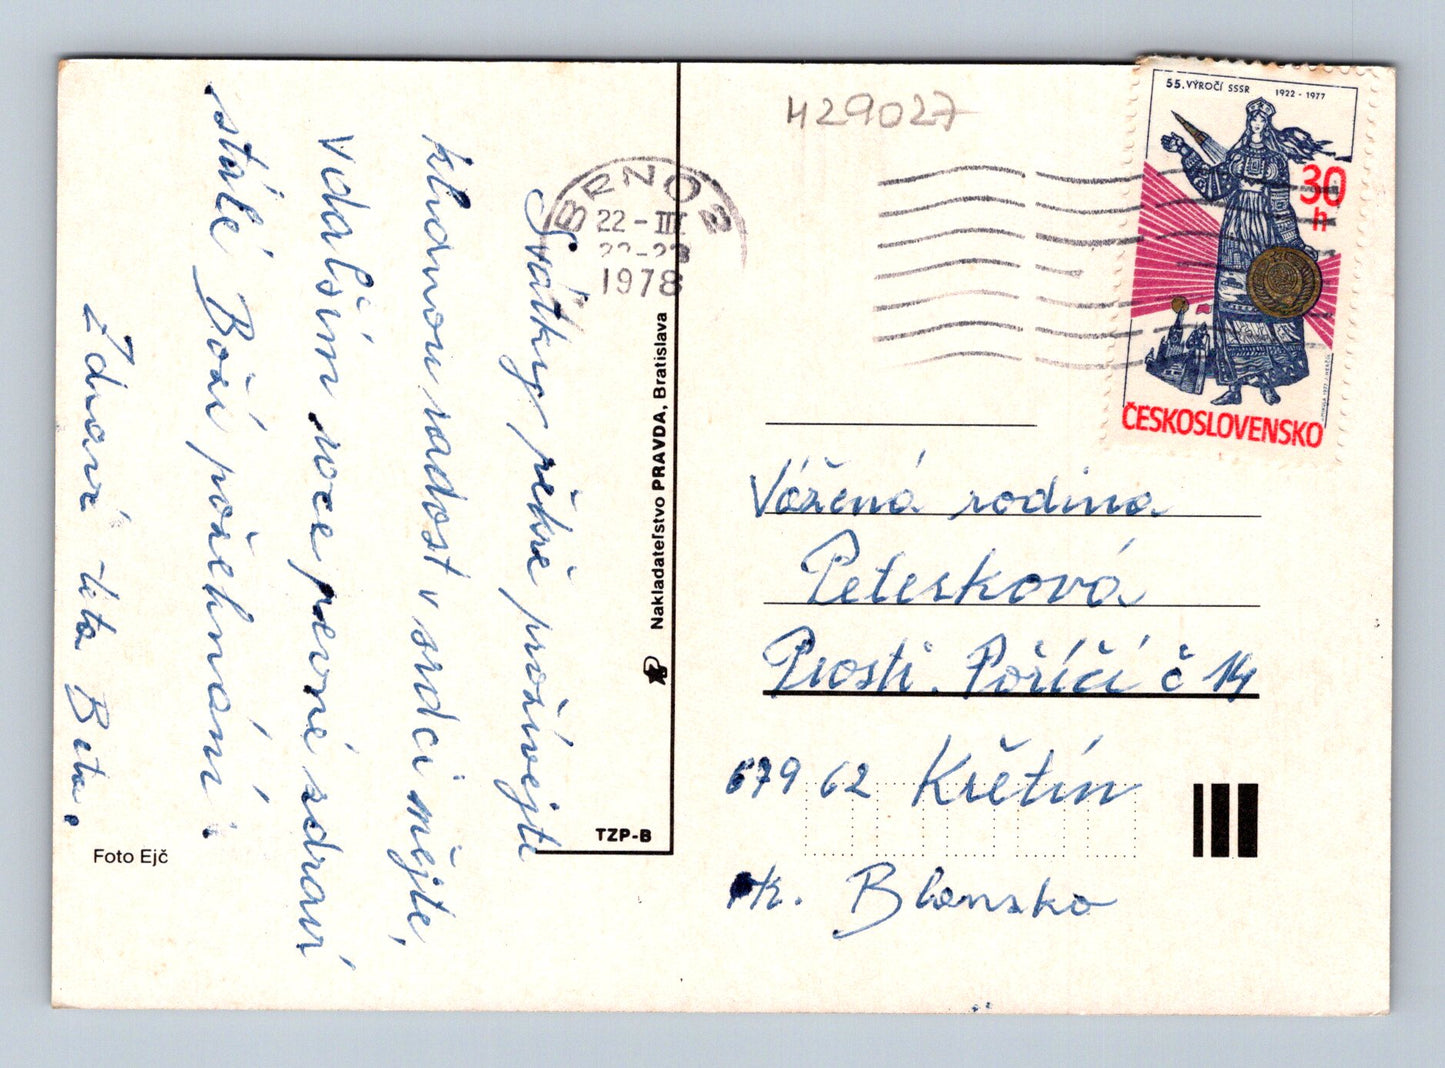 Svátky pěkné prožívejte
klidnou radost v srdci mějte,
V dalším roce pevné zdraví
stálé Boží požehnání.
Zdraví teta Beta.
Foto Ejč
TZP-B
Nakladateľstvo PRAVDA, Bratislava
429027
BRNO 2
22-III
22-23
1978
55. VÝROČÍ SSSR 1922 - 1977
30
h
ČESKOSLOVENSKO
Vážená rodina
Petesková
Prostř. Poříčí č 14
679 62 Křetín
ok. Blansko